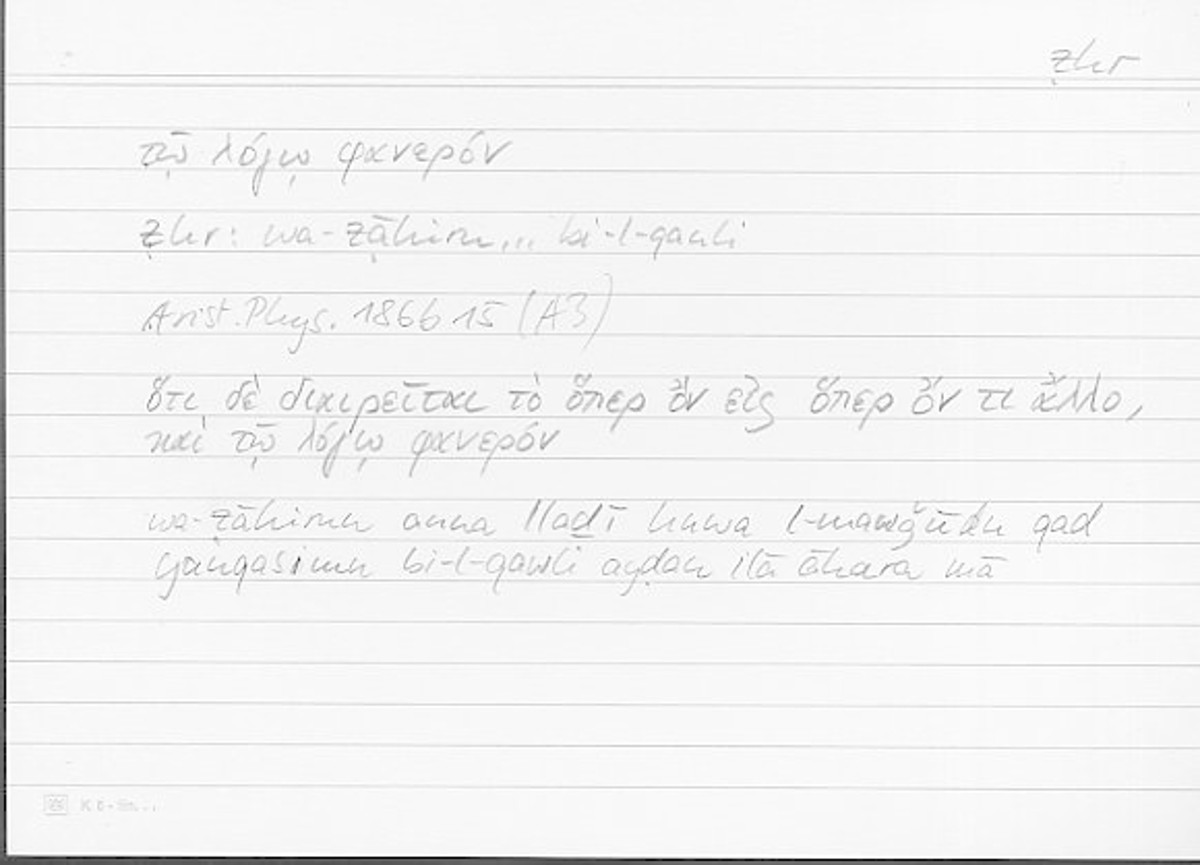 ẓhr
τῷ λόγῳ φανερόν
ẓhr: wa-ẓāhirun... bi-l-qauli
Arist. Phys. 186b15 (A3)
ὅτι δὲ διαιρεῖται τὸ ὅπερ ὂν εἰς ὅπερ ὄν τι ἄλλο,
καὶ τῷ λόγῳ φανερόν
wa-ẓāhirun anna lladī huwa l-mawǧūdu qad
yanqasimu bi-l-qawli ayḍan ilā āḫara mā